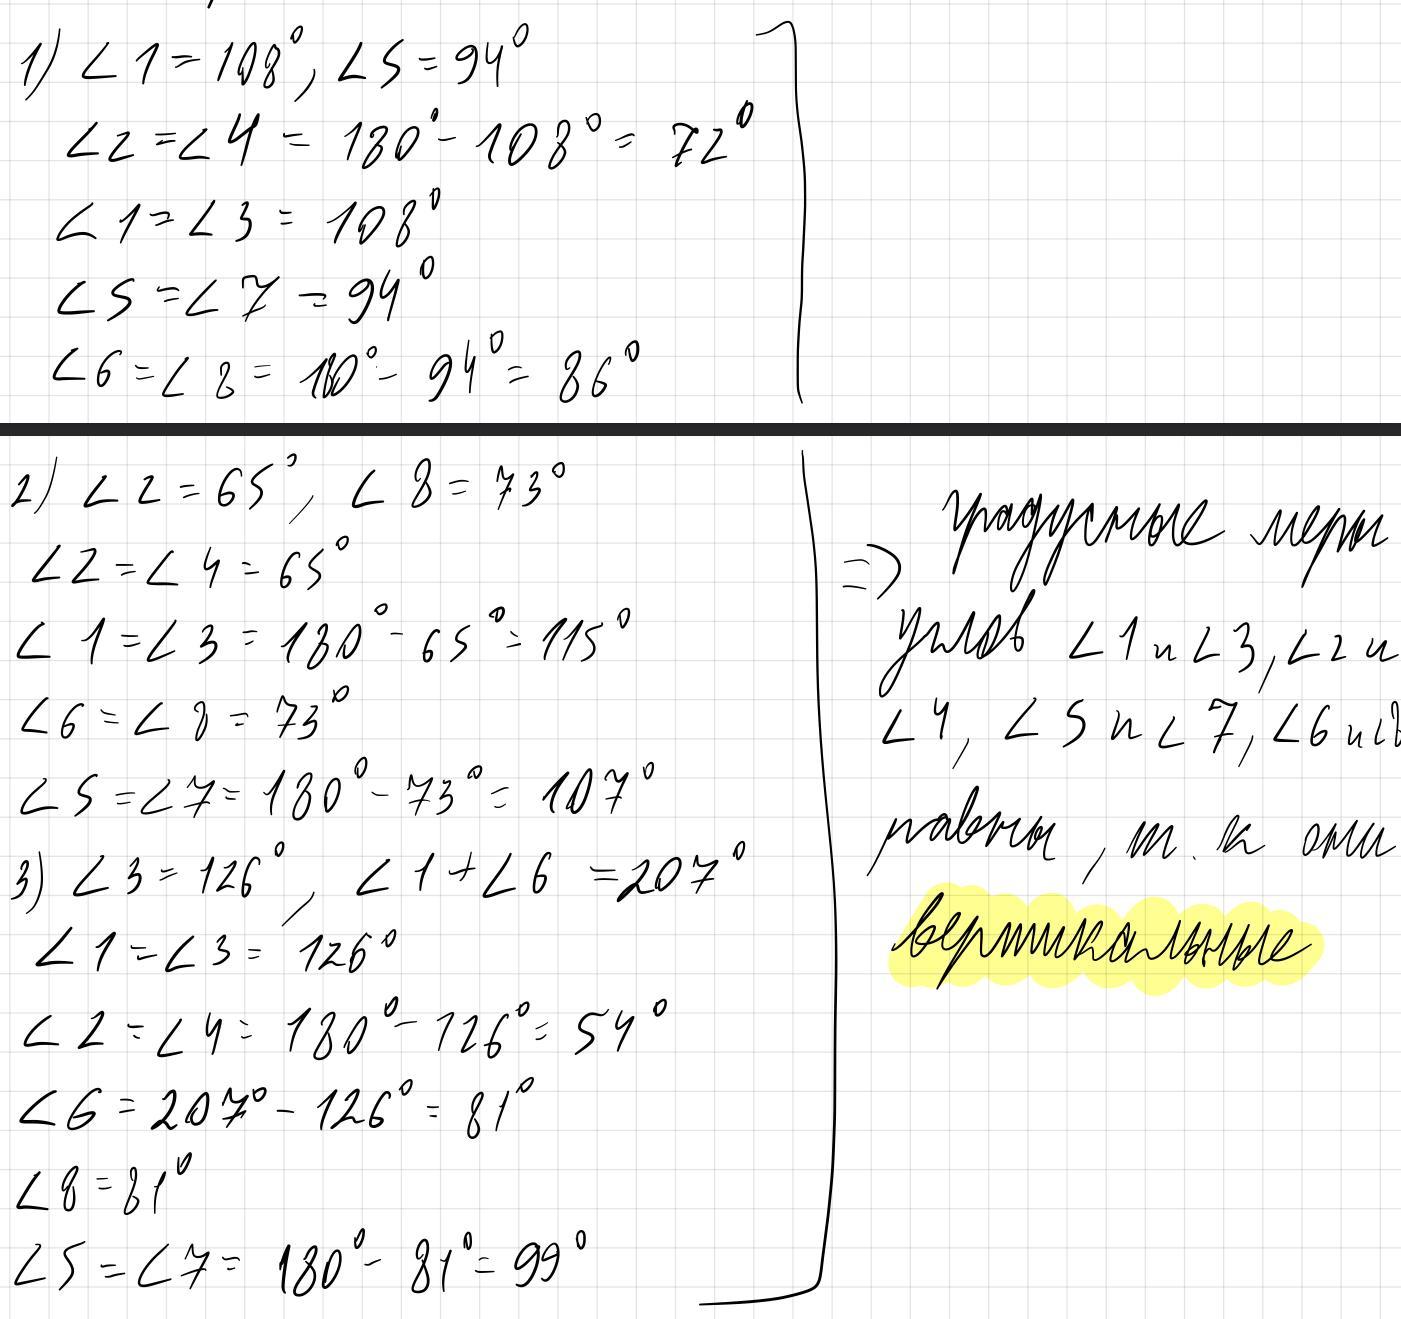 1) ∠1 = 108°, ∠5 = 94°
∠2 = ∠4 = 180° - 108° = 72°
∠1 = ∠3 = 108°
∠5 = ∠7 = 94°
∠6 = ∠8 = 180° - 94° = 86°
2) ∠2 = 65°, ∠8 = 73°
∠2 = ∠4 = 65°
∠1 = ∠3 = 180° - 65° = 115°
∠6 = ∠8 = 73°
∠5 = ∠7 = 180° - 73° = 107°
3) ∠3 = 126°, ∠1 + ∠6 = 207°
∠1 = ∠3 = 126°
∠2 = ∠4 = 180° - 126° = 54°
∠6 = 207° - 126° = 81°
∠8 = 81°
∠5 = ∠7 = 180° - 81° = 99°
=> градусные меры
углов ∠1 и ∠3, ∠2 и
∠4, ∠5 и ∠7, ∠6 и ∠8
равны, т.к они
вертикальные